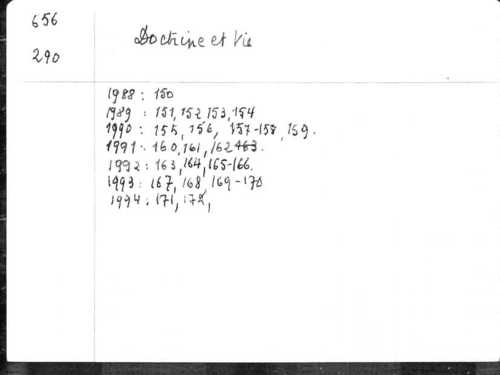 656
290
Doctrine et Vie
1988 : 150
1989 : 151, 152 153, 154
1990 : 155, 156, 157-158, 159.
1991 : 160, 161, 162 163.
1992 : 163, 164, 165-166.
1993 : 167, 168, 169-170
1994 : 171, 172,